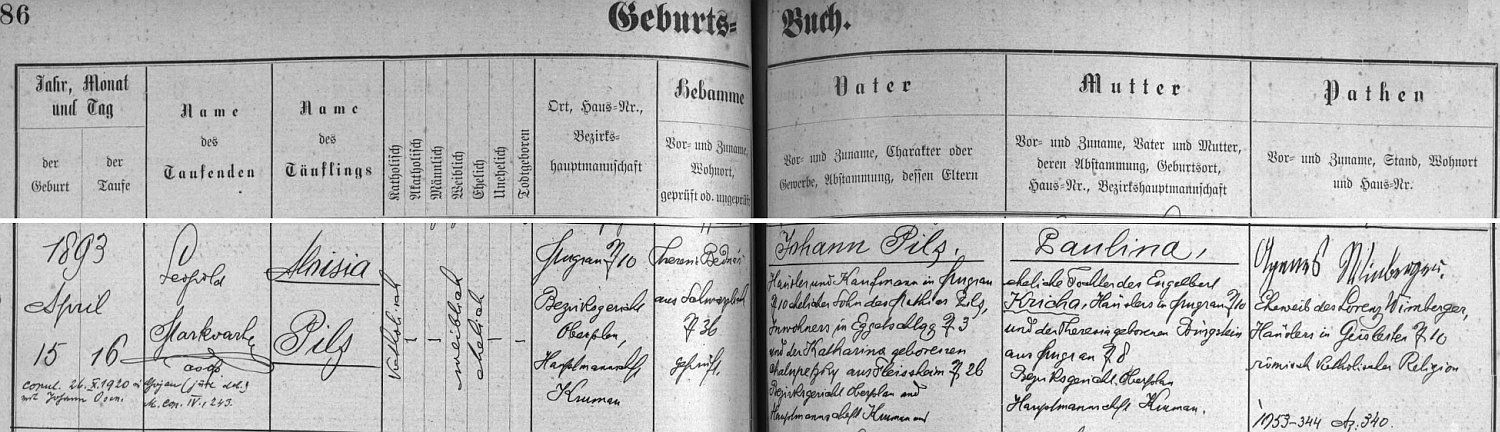 86
Geburts-
Buch.
Jahr, Monat
und Tag
der
Geburt
der
Taufe
Name
des
Taufenden
Name
des
Täuflings
Katholisch
Akatholisch
Männlich
Weiblich
Ehelich
Unehelich
Todtgeboren
Ort, Haus-Nr.,
Bezirks-
hauptmannschaft
Hebamme
Vor- und Zuname,
Wohnort,
geprüft od. ungeprüft
Vater
Vor- und Zuname, Charakter oder
Gewerbe, Abstammung, dessen Eltern
Mutter
Vor- und Zuname, Vater und Mutter,
deren Abstammung, Geburtsort,
Haus-Nr., Bezirkshauptmannschaft
Pathen
Vor- und Zuname, Stand, Wohnort
und Haus-Nr.
1893
April
15 16
copul. 26. X. 1920
mit Johann
Leopold
coop.
IV., 243.
Aloisia
Pilz
katholisch
1
1
weiblich
ehelich
1
1
10
Bezirksgericht
Oberplan,
Hauptmannschft
Krumau
36
geprüft.
Johann Pilz,
Häusler und Kaufmann in
10 ehelicher Sohn des Pilz,
Inwohners in 3
und der Katharina geborenen
aus 26
Bezirksgericht Oberplan und
Hauptmannschft Krumau
Paulina,
eheliche Tochter des Engelbert
Kricha, Häuslers in 10
und der Theresia geborenen
aus 8
Bezirksgericht Oberplan
Hauptmannschft Krumau.
Agnes Wimberger,
Eheweib des Lorenz Wimberger,
Häuslers in 10
römisch katholischer Religion
1953-344 340.